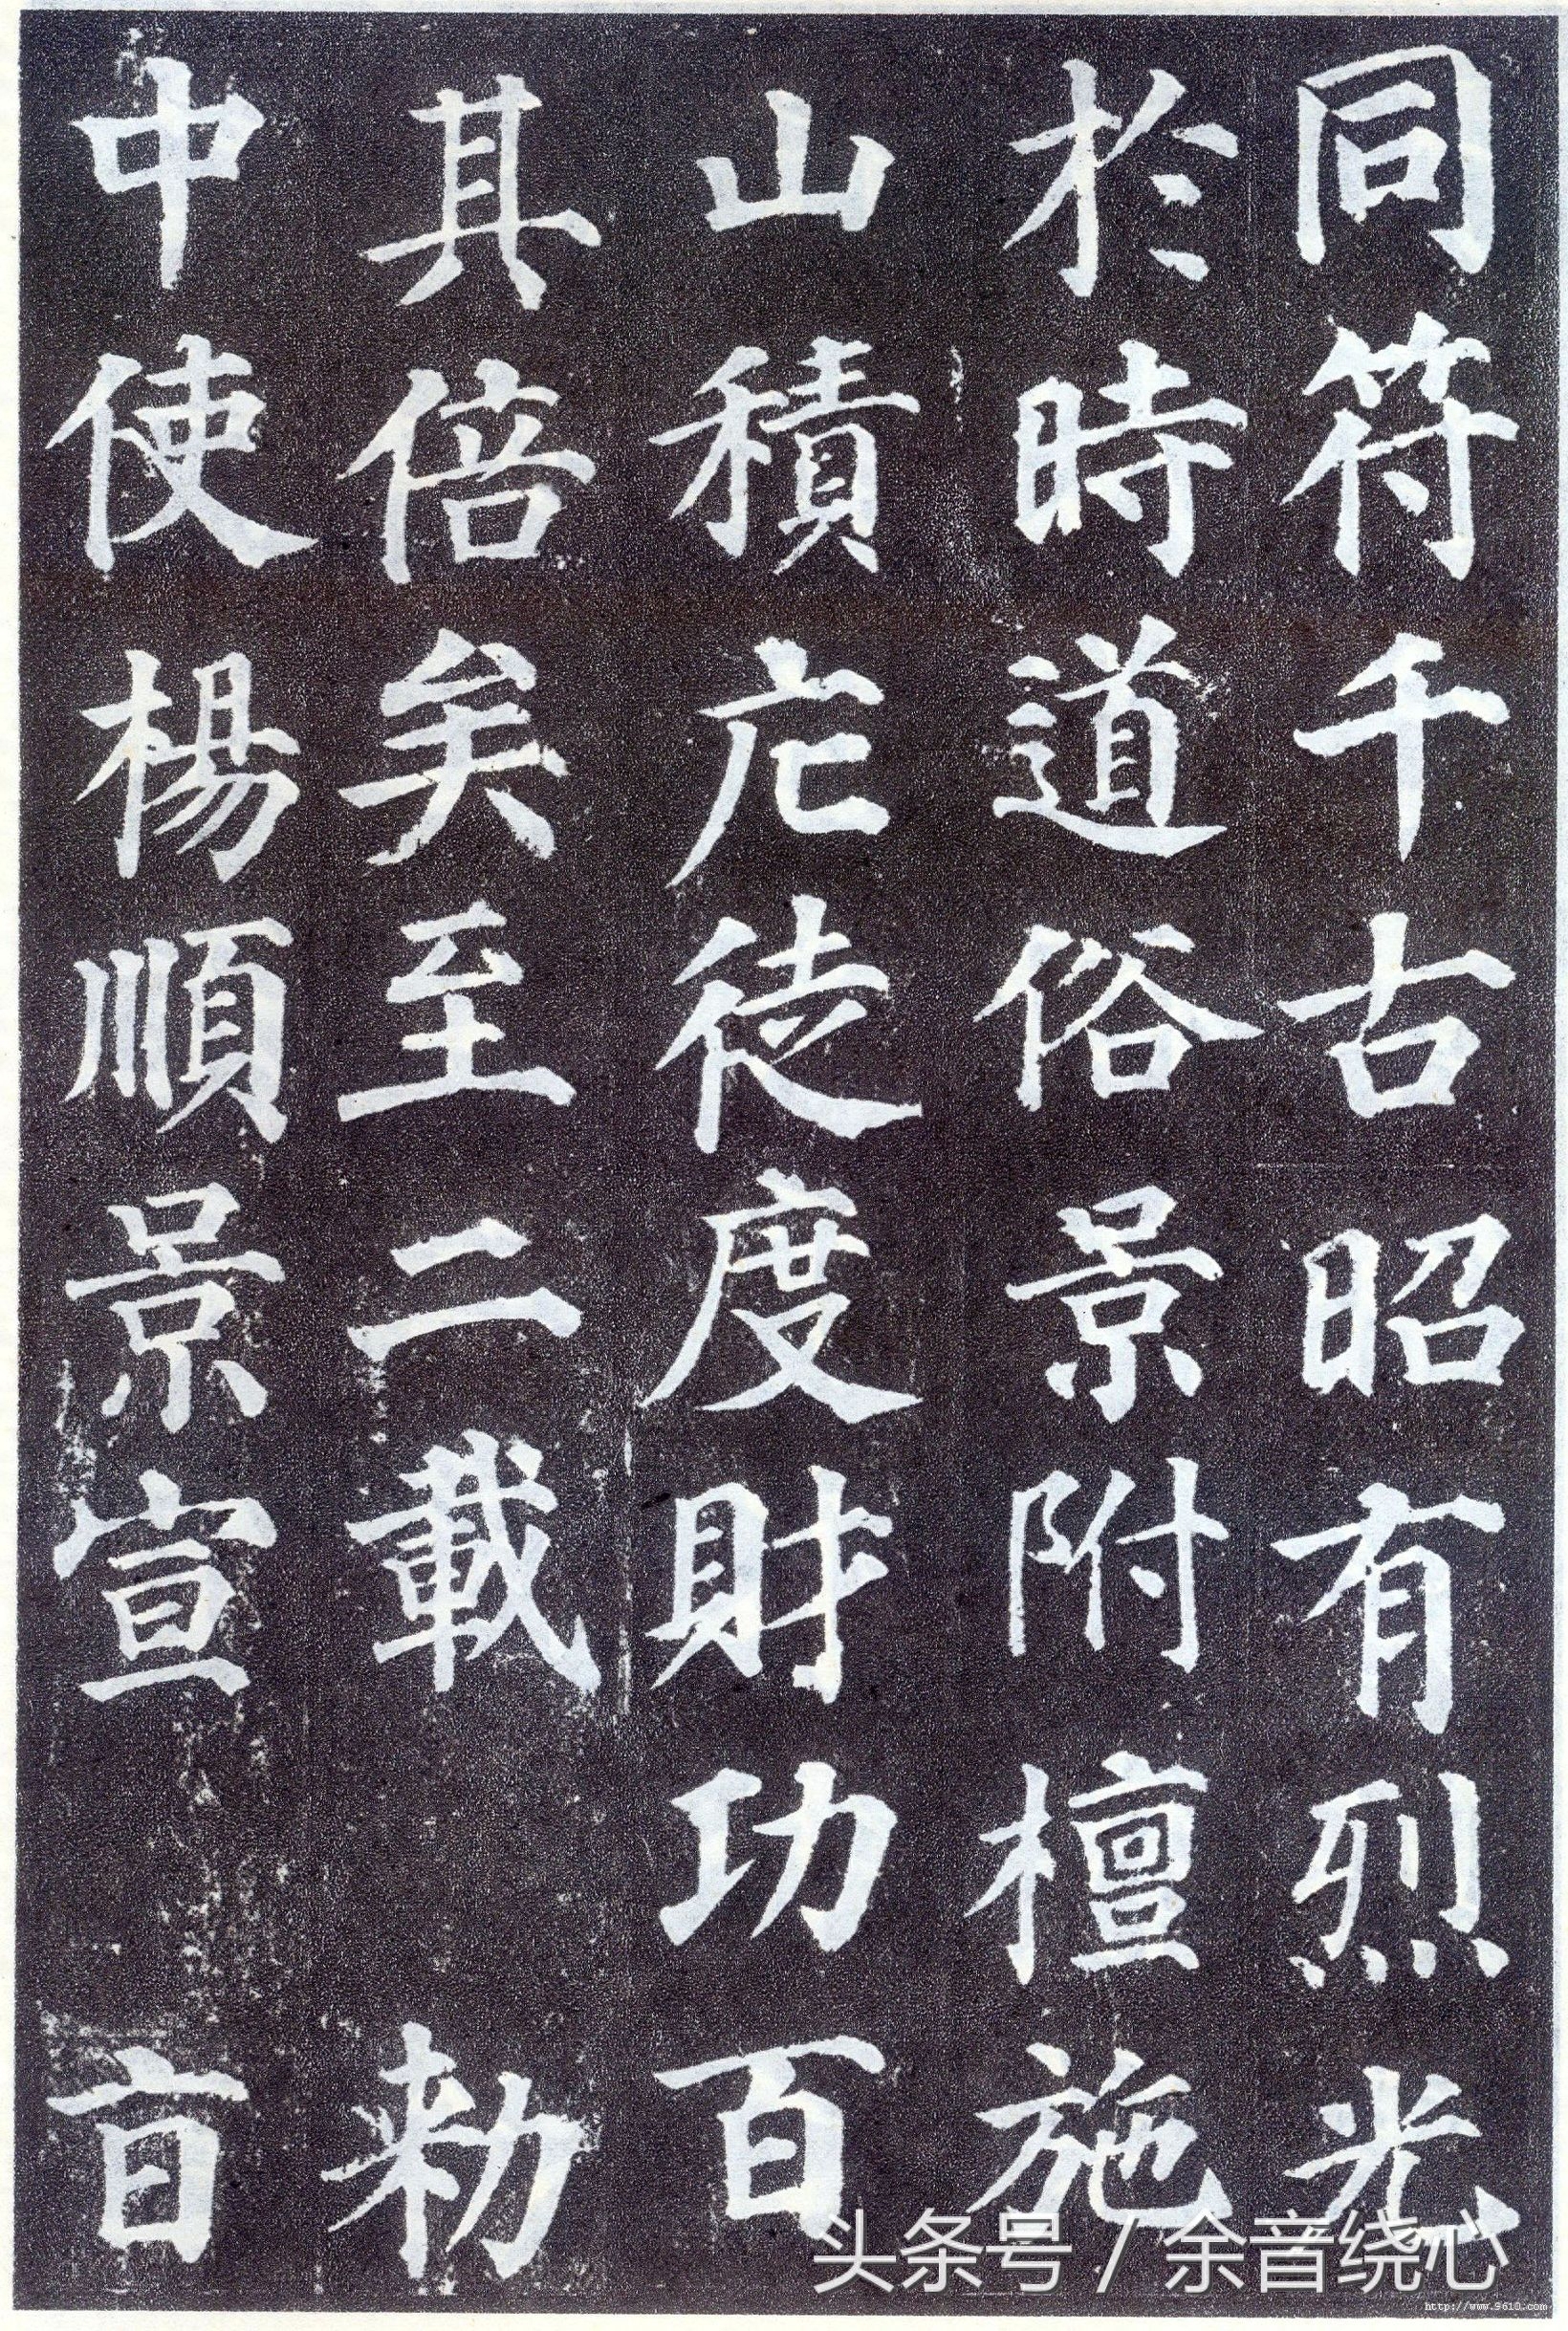 同符千古昭有烈光
於時道俗景附檀施
山積庀徒度財功百
其倍矣至二載 勑
中使楊順景宣 旨
头条号 / 余音绕心
http://www.9610.com